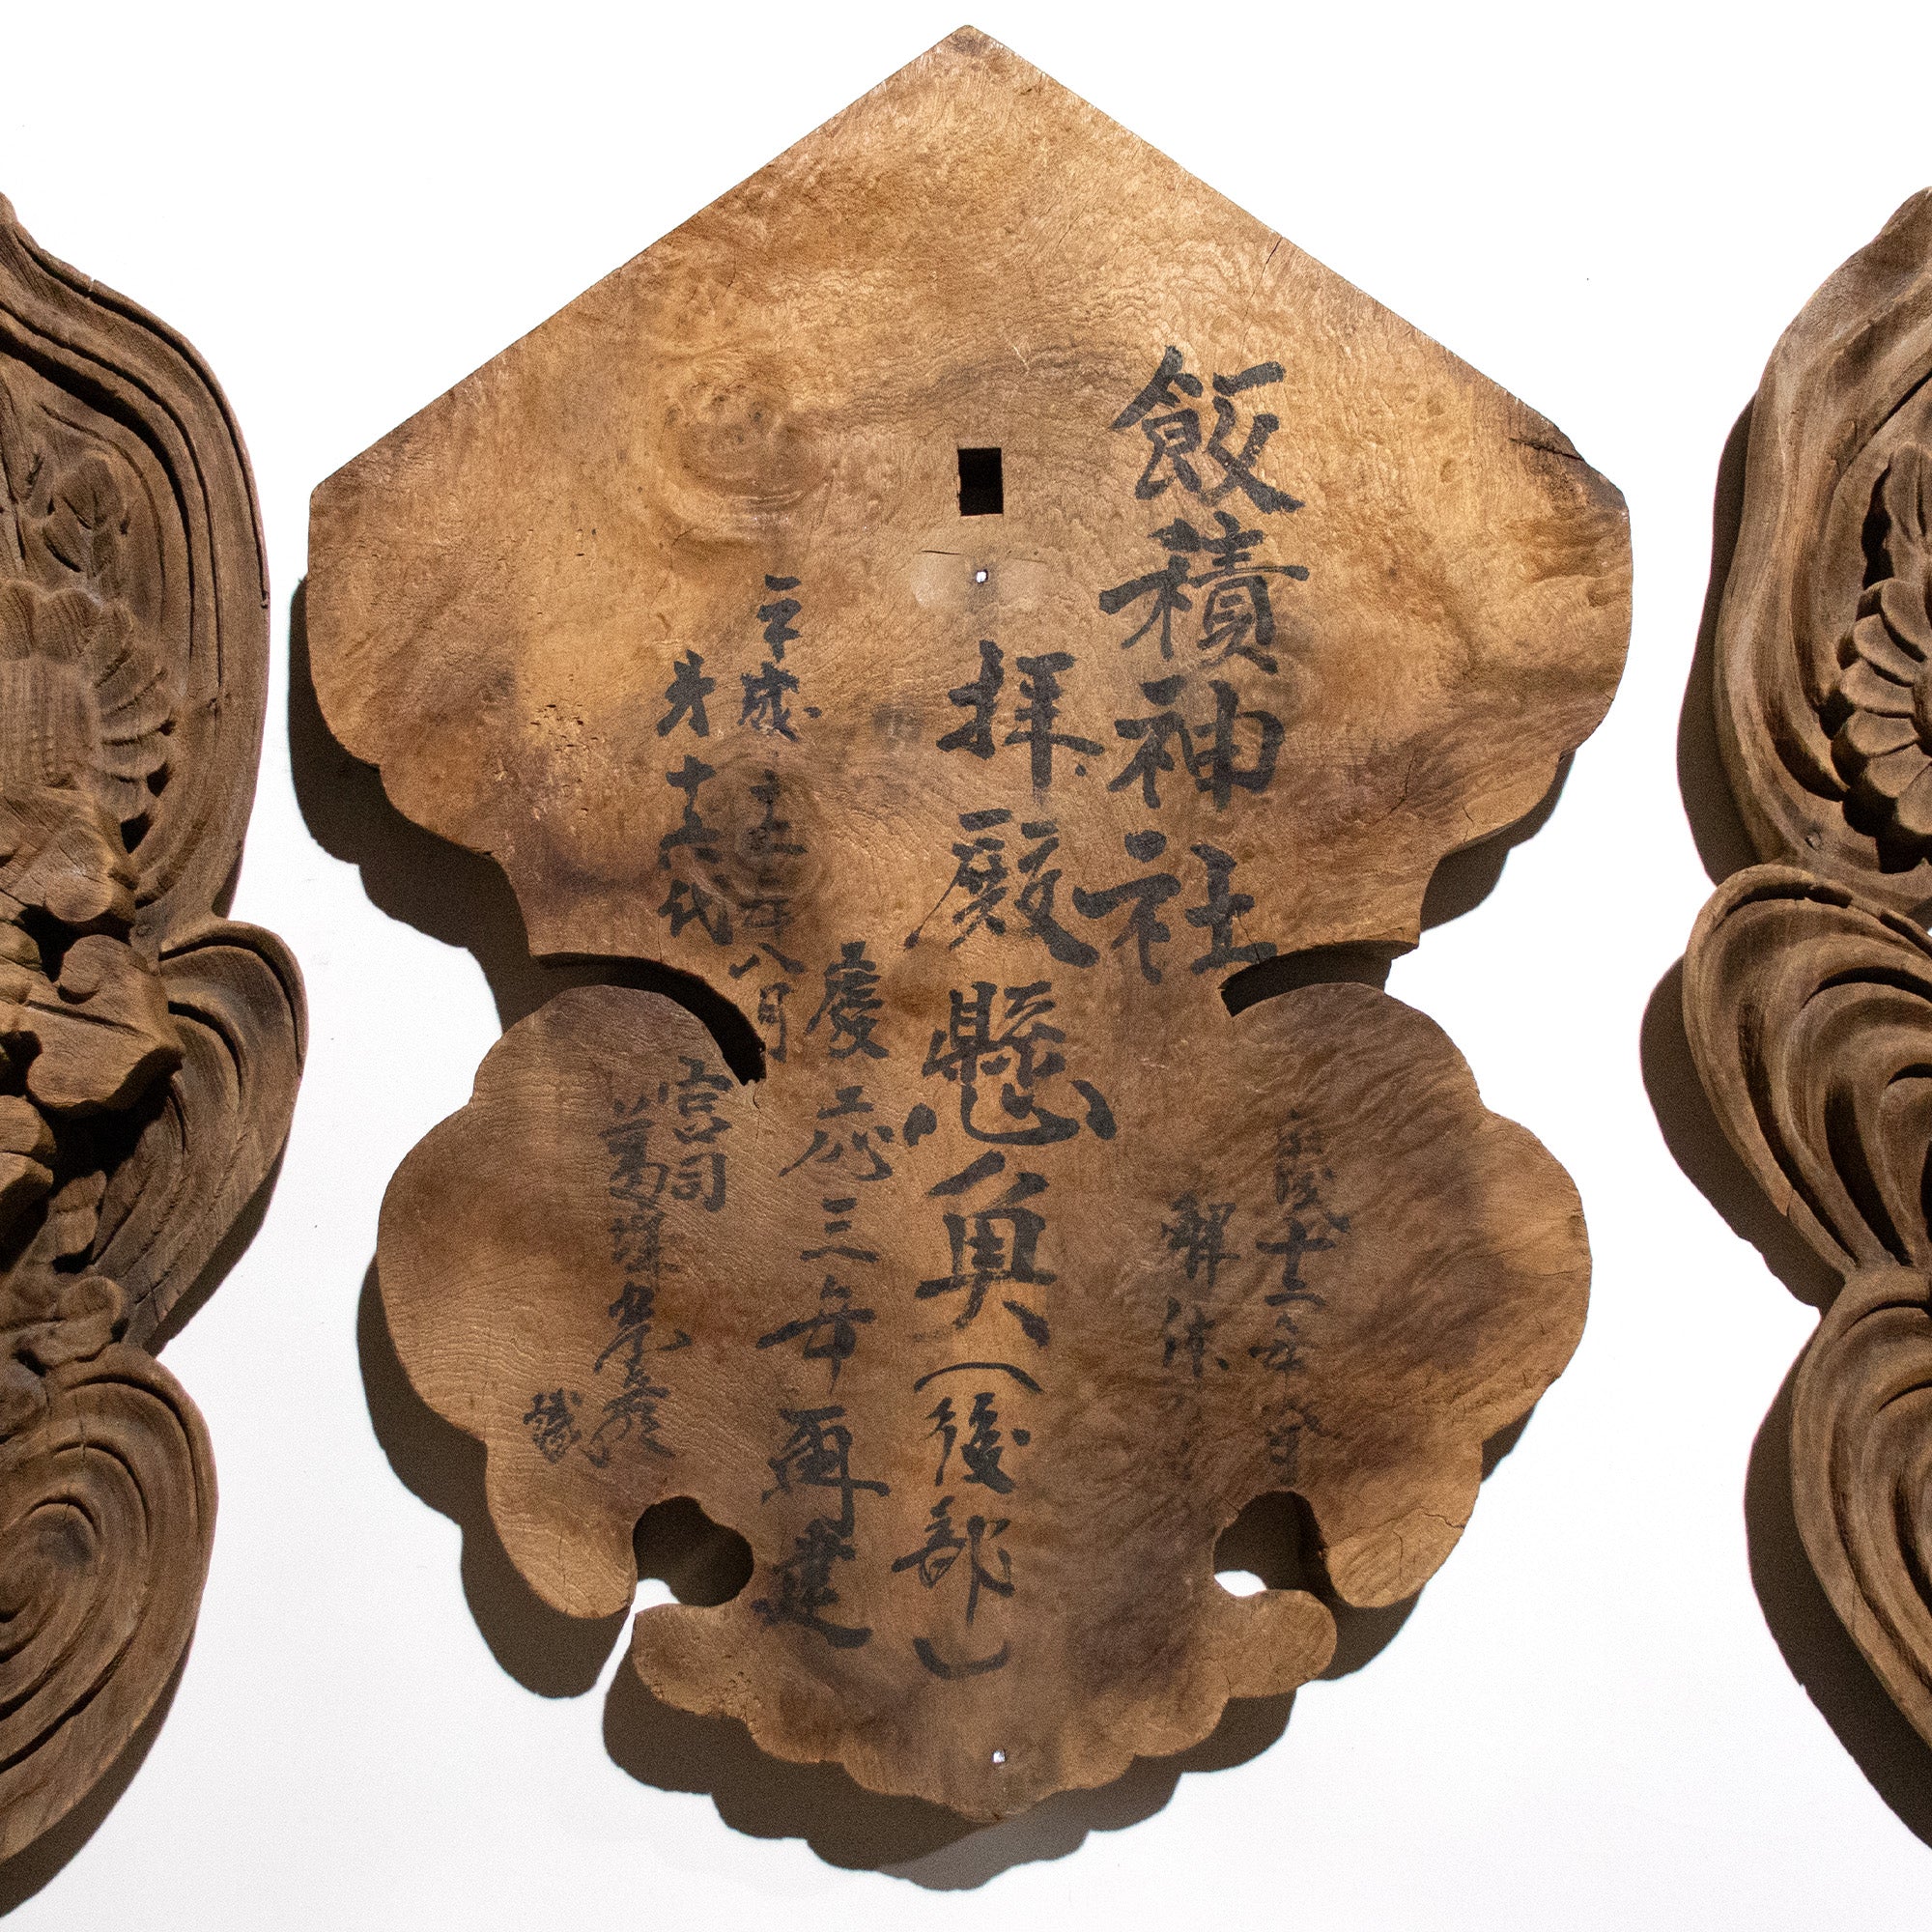 飯積神社
拝殿懸魚(後部)
平成十二年 日
解体
慶応三年再建
平成十二年八月
才十六代
宮司
葛城 彦
識